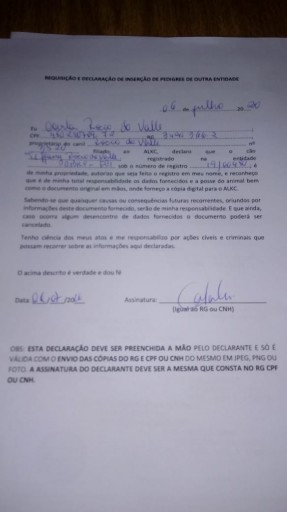 REQUISIÇÃO E DECLARAÇÃO DE INSERÇÃO DE PEDIGREE DE OUTRA ENTIDADE
06 de julho de 20
Eu do Valle
CPF
proprietário do canil do Valle nº
filiado ao ALKC, declaro que o cão
registrado na entidade
sob o número de registro é
de minha propriedade, autorizo que seja feito o registro em meu nome, e reconheço
que é de minha total responsabilidade os dados fornecidos e a posse do animal bem
como o documento original em mãos, onde forneço a cópia digital para o ALKC.
Sabendo-se que quaisquer causas ou consequências futuras recorrentes, oriundos por
informações deste documento fornecido, serão de minha responsabilidade. E que ainda,
caso ocorra algum desencontro de dados fornecidos o documento poderá ser
cancelado.
Tenho ciência dos meus atos e me responsabilizo por ações cíveis e criminais que
possam recorrer sobre as informações aqui declaradas.
O acima descrito é verdade e dou fé
Data: Assinatura:
(Igual ao RG ou CNH)
OBS: ESTA DECLARAÇÃO DEVE SER PREENCHIDA A MÃO PELO DECLARANTE E SÓ É
VÁLIDA COM O ENVIO DAS CÓPIAS DO RG E CPF OU CNH DO MESMO EM JPEG, PNG OU
FOTO. A ASSINATURA DO DECLARANTE DEVE SER A MESMA QUE CONSTA NO RG CPF
OU CNH.